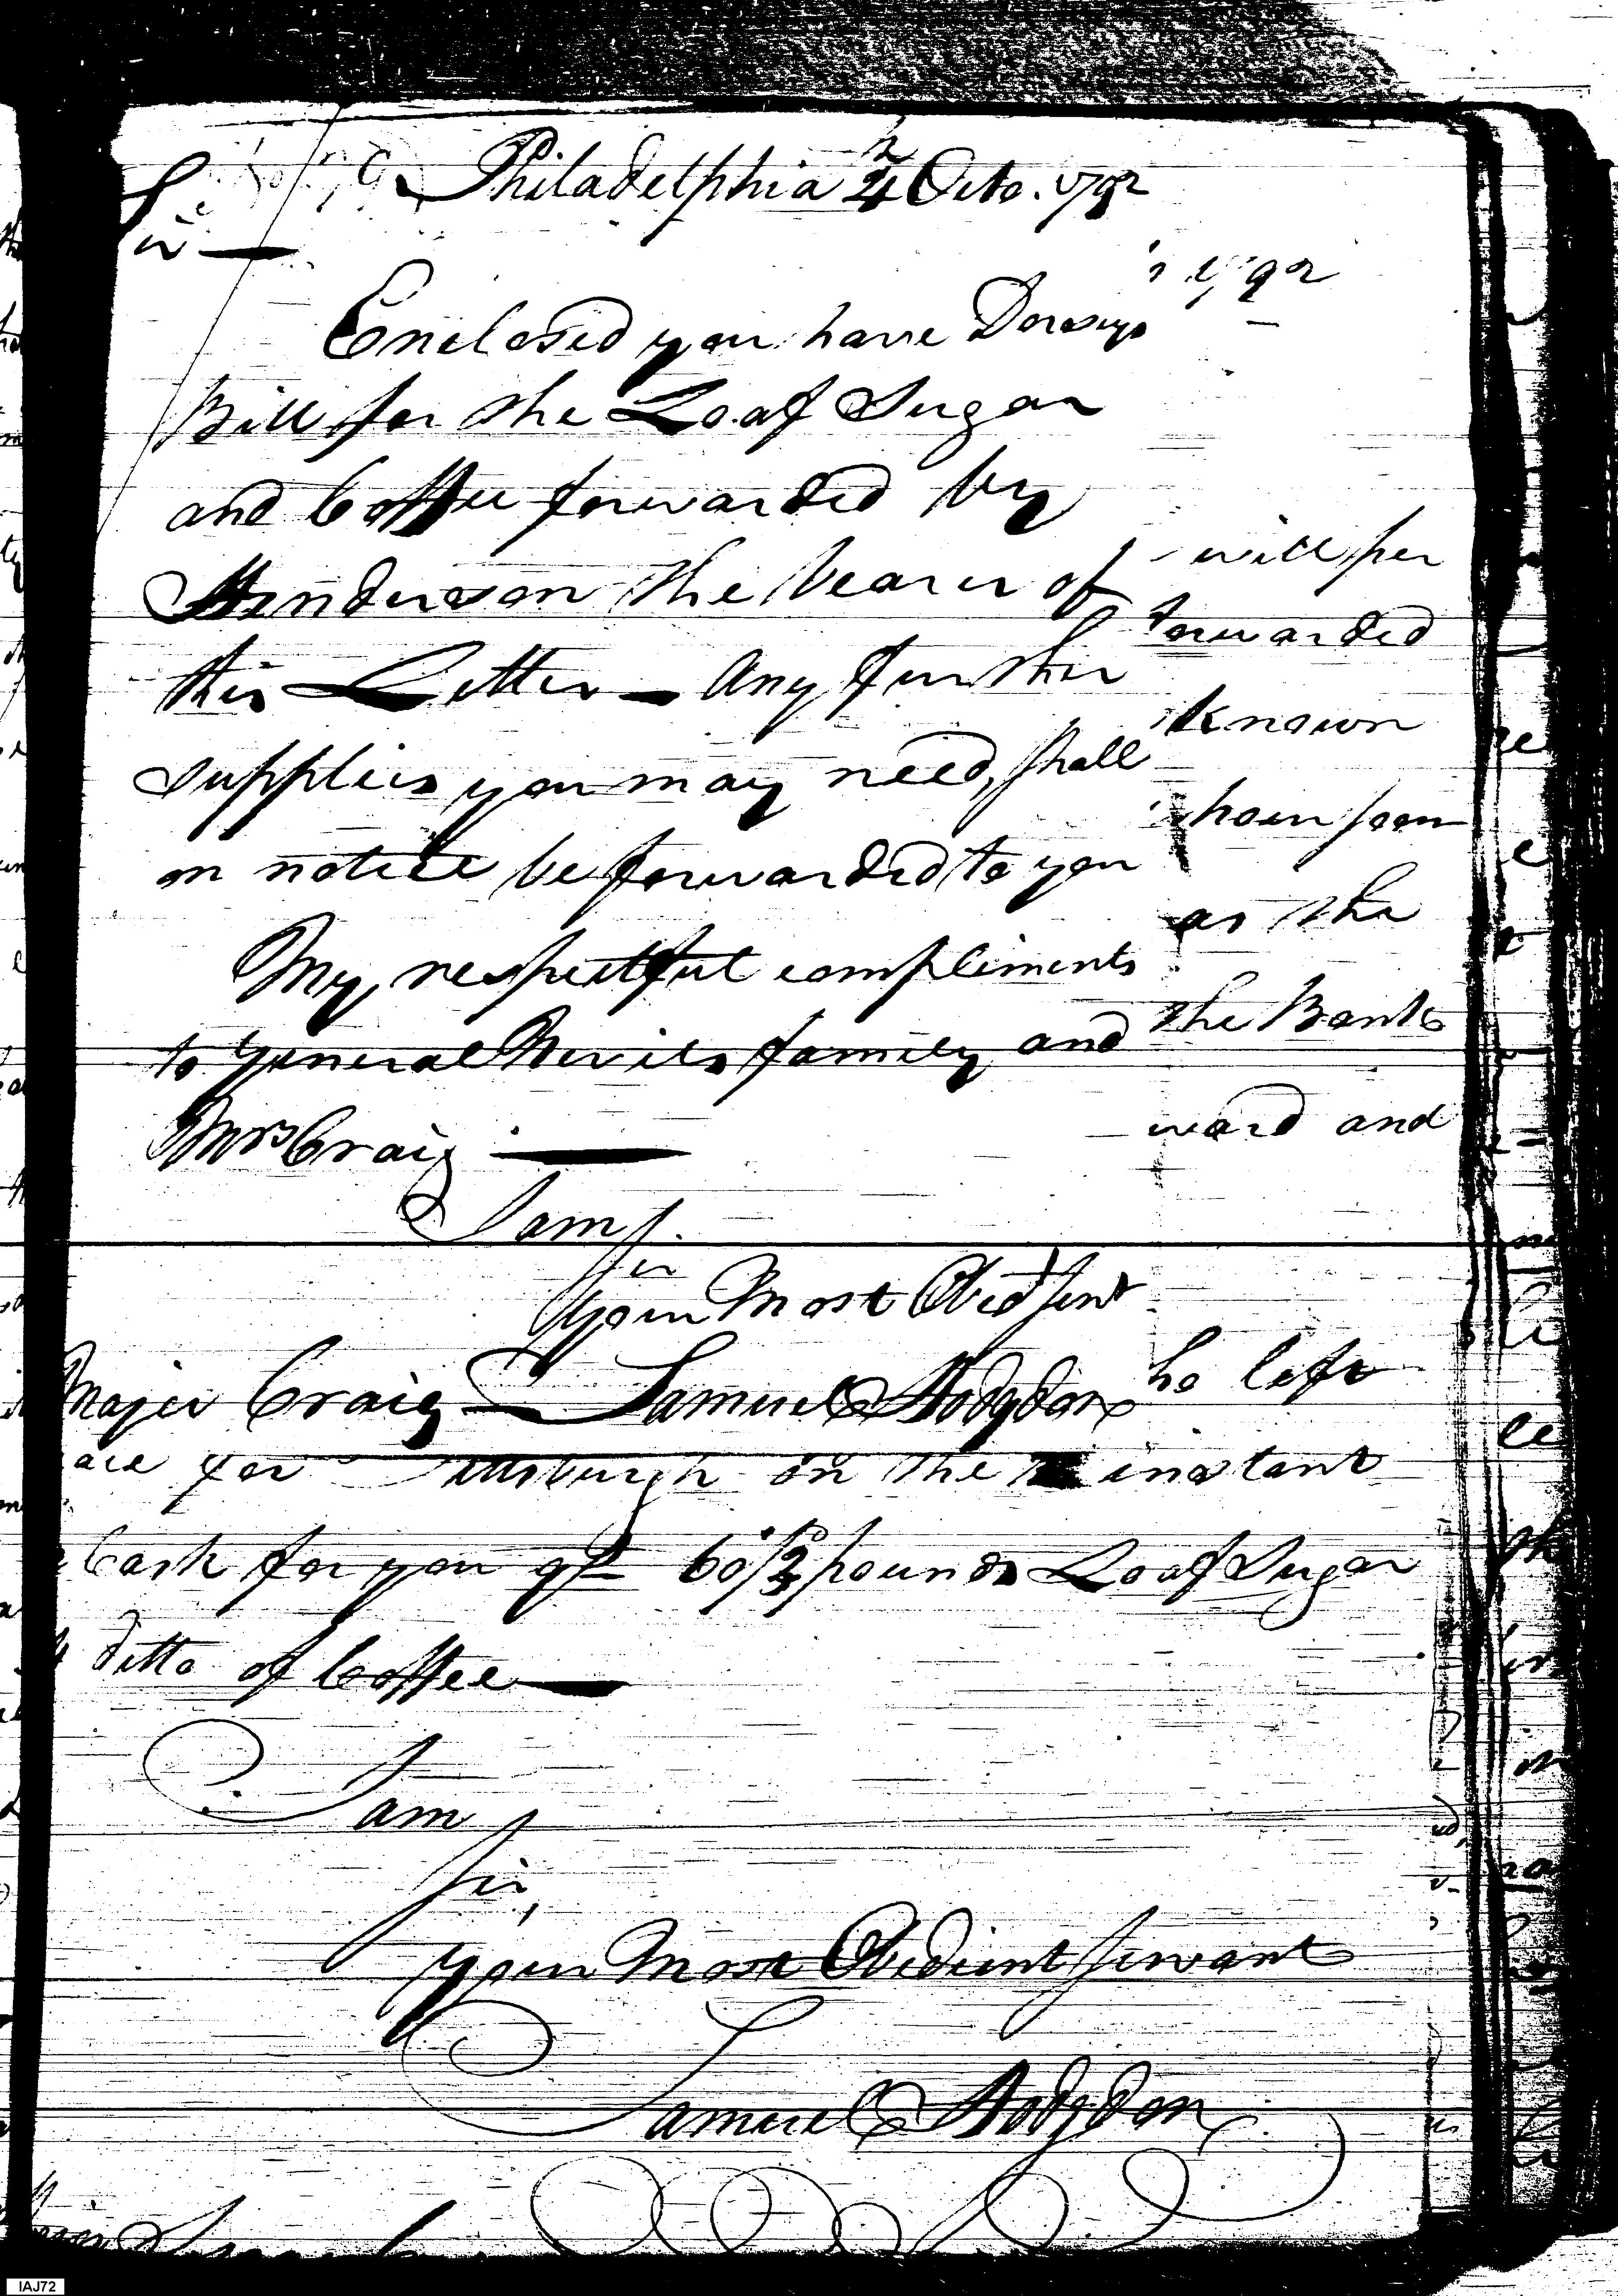 Philadelphia 4 Octo. 1792
Sir
Enclosed you have Dorseys
Bill for the Loaf Sugar
and Coffee forwarded by
Henderson the bearer of
this Letter — Any further
supplies you may need, shall
on notice be forwarded to you
My respectful compliments
to General Nevils family and
Mrs Craig —
I am
Sir
Your Most Obedt Servt
Major Craig Samuel Hodgdon
1792
will per
forwarded
known
soon
as the
the Bank
ward and
he left
for Pittsburgh on the instant
Cask for you of 60 1/2 pounds Loaf Sugar
ditto of Coffee —
I am
Sir,
Your Most Obedient Servant
Samuel Hodgdon
IAJ72